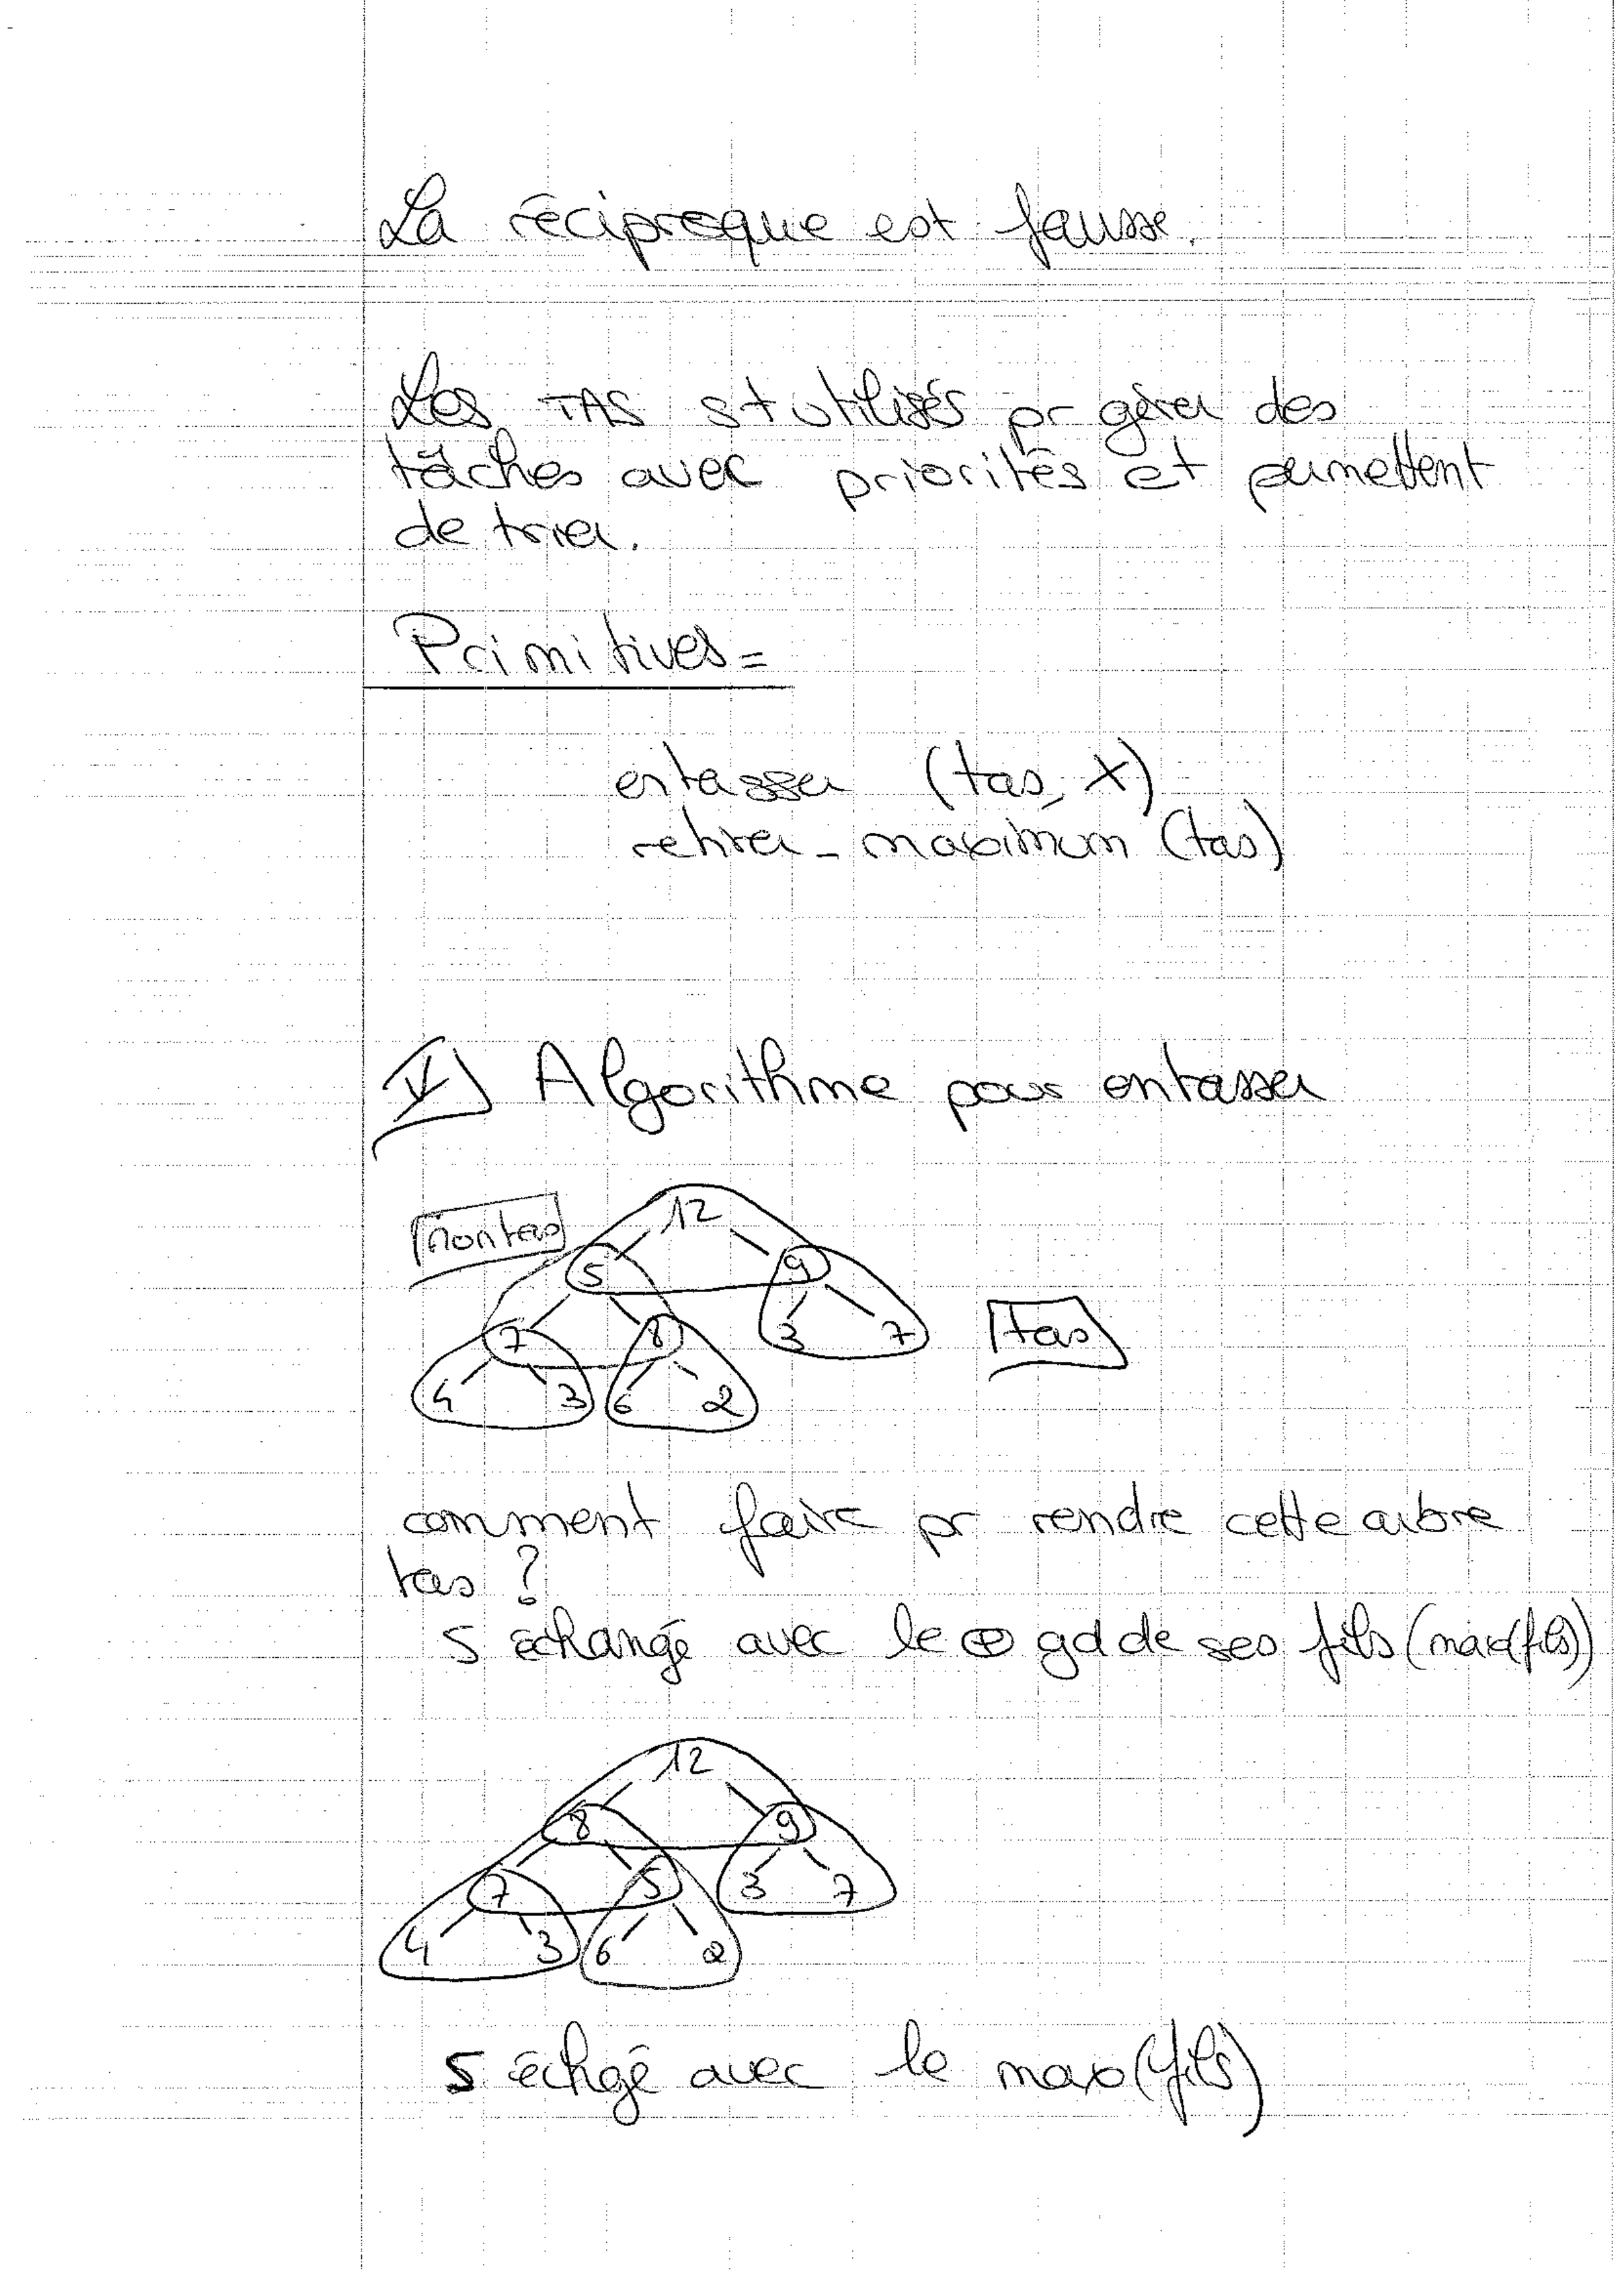 La réciproque est fausse.
Les TAS st utilisés pr gérer des
tâches avec priorités et permettent
de trier.
Primitives =
entasser (tas, X)
retirer_maximum (tas)
V) Algorithme pour entasser
non tas
12
5 9
7 8 3 7
tas
4 3 6 2
comment faire pr rendre cette arbre
tas ?
5 échangé avec le ⊕ gd de ses fils (max(fils))
12
8 9
7 5 3 7
4 3 6 2
5 échgé avec le max(fils)